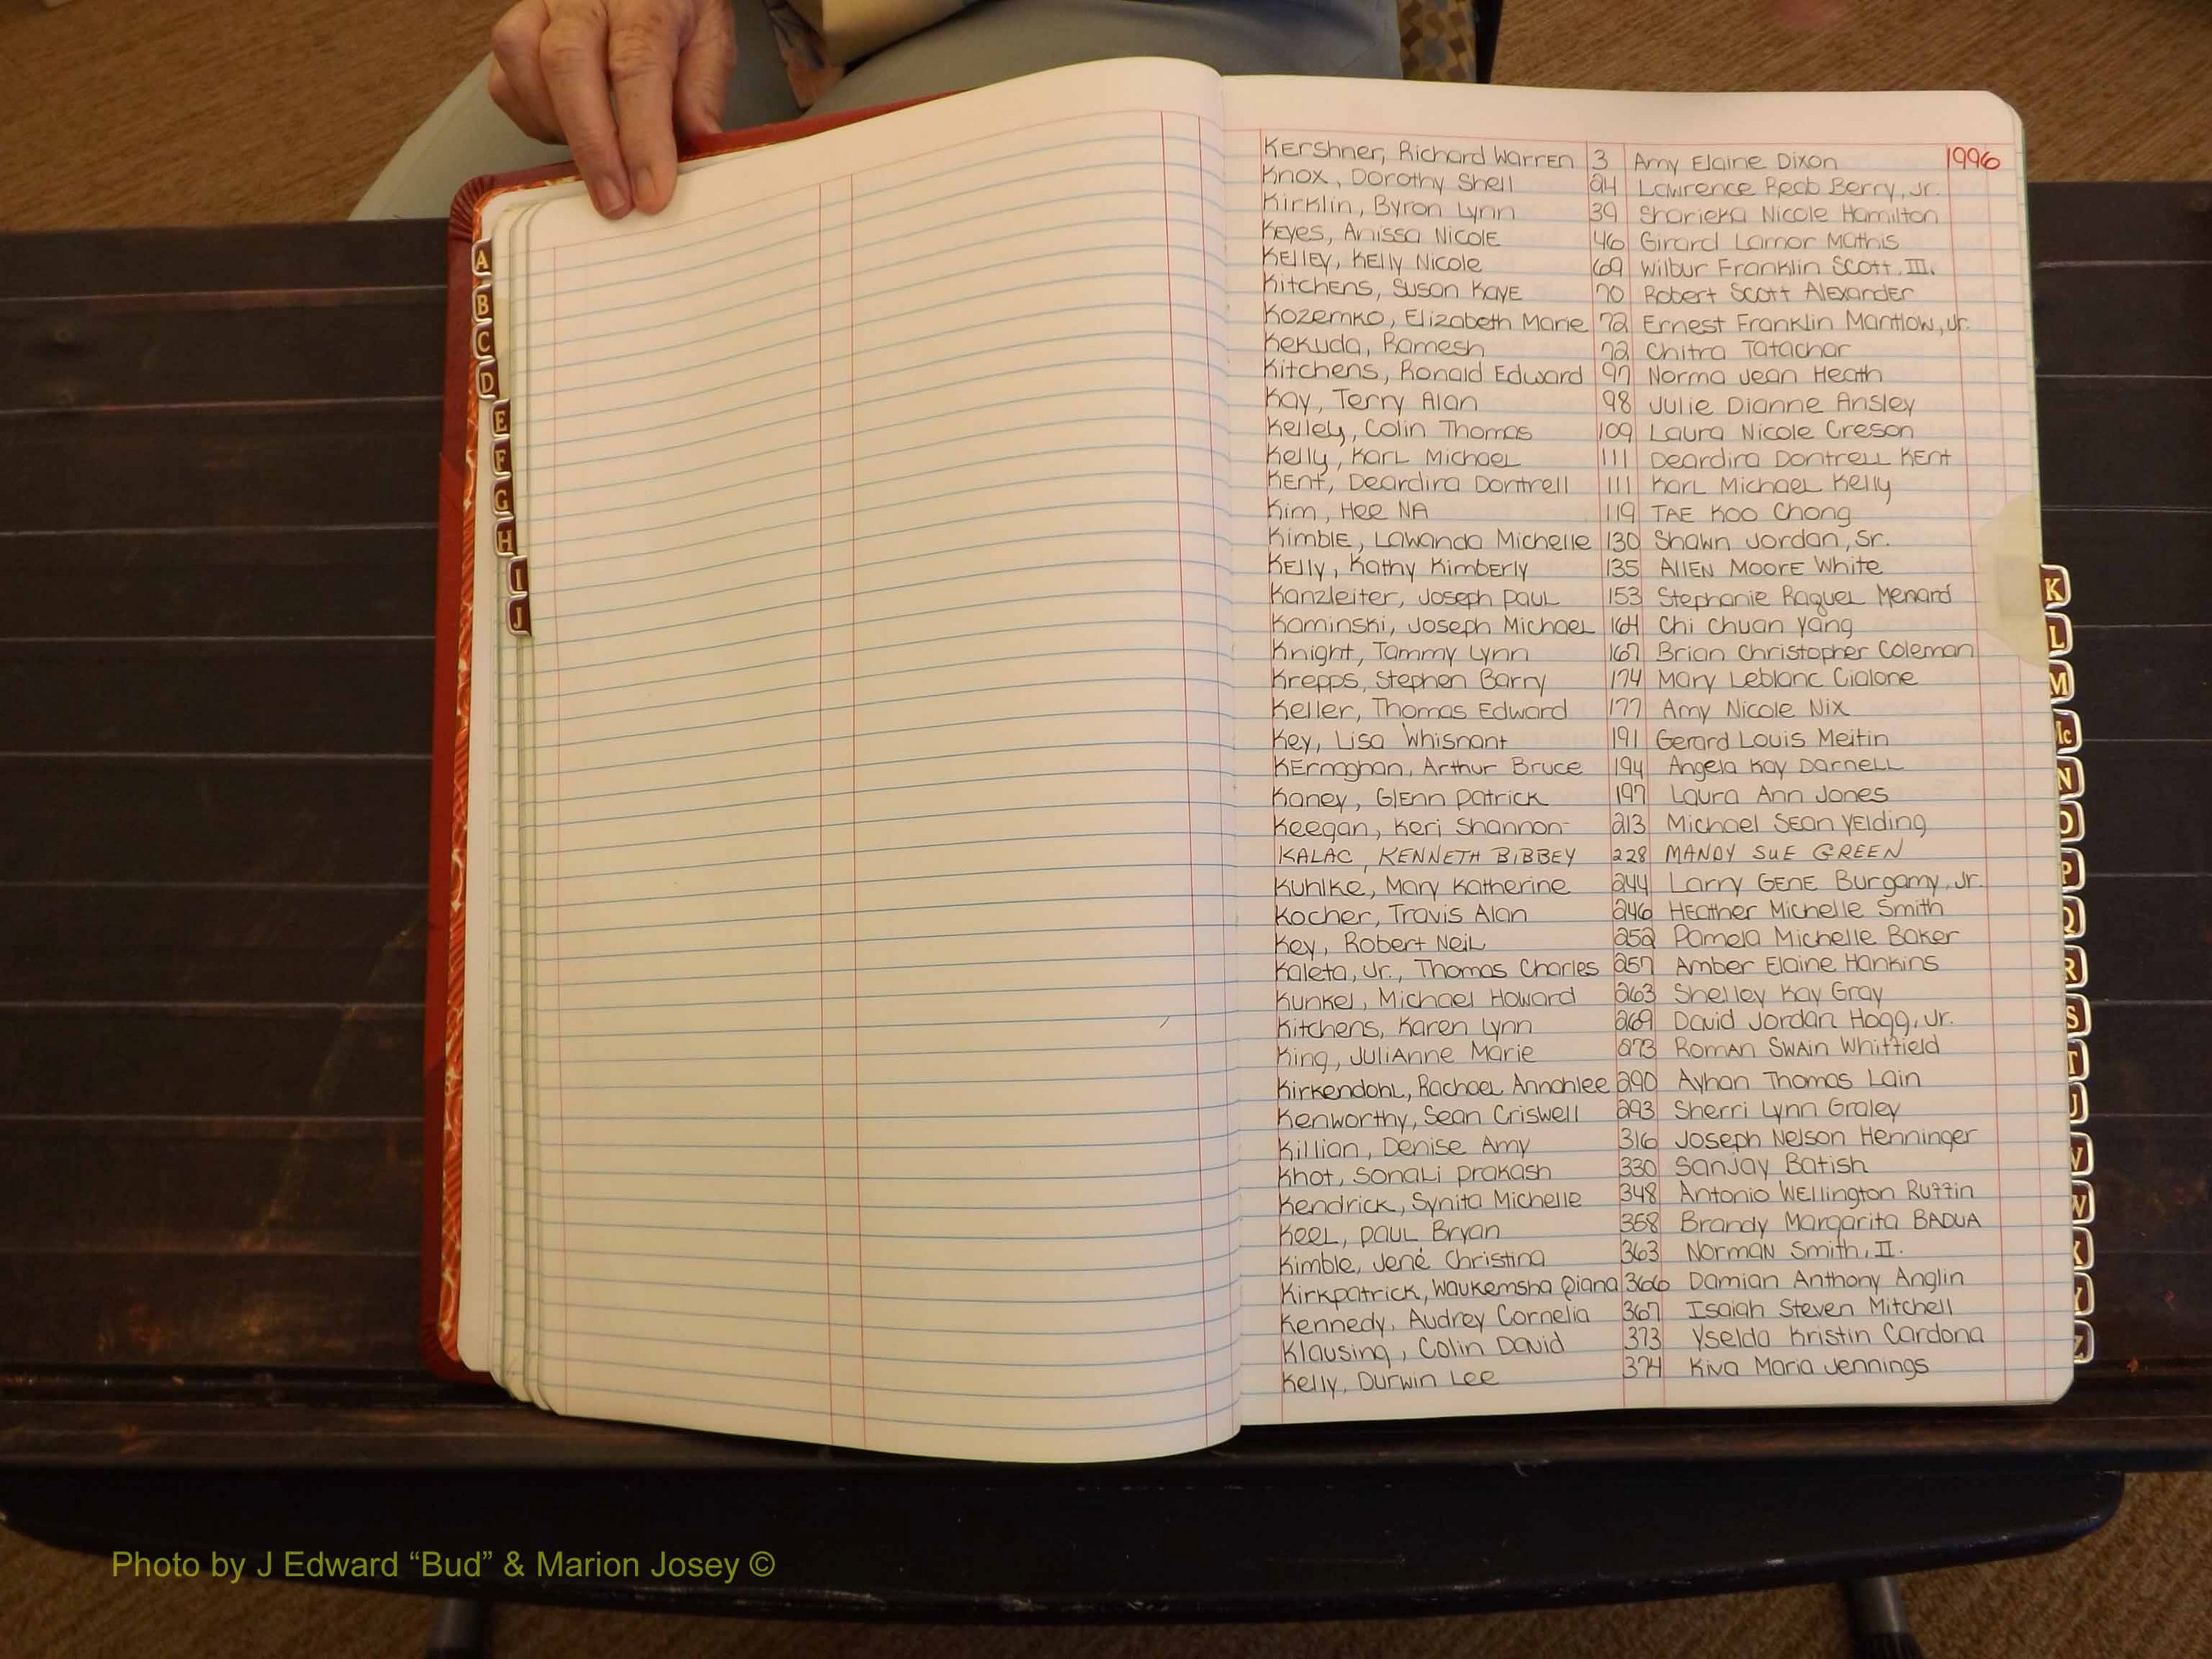 Kershner, Richard Warren 3 Amy Elaine Dixon 1996
Knox, Dorothy Shell 24 Lawrence Reab Berry, Jr.
Kirklin, Byron Lynn 39 Sharieka Nicole Hamilton
Keyes, Anissa Nicole 46 Girard Lamar Mathis
Kelley, Kelly Nicole 69 Wilbur Franklin Scott, III.
Kitchens, Susan Kaye 70 Robert Scott Alexander
Kozemko, Elizabeth Marie 72 Ernest Franklin Mantlow, Jr.
Kekuda, Ramesh 72 Chitra Tatachar
Kitchens, Ronald Edward 97 Norma Jean Heath
Kay, Terry Alan 98 Julie Dianne Ansley
Kelley, Colin Thomas 109 Laura Nicole Creson
Kelly, Karl Michael 111 Deardira Dontrell Kent
Kent, Deardira Dontrell 111 Karl Michael Kelly
Kim, Hee NA 119 TAE Koo Chong
Kimble, Lawanda Michelle 130 Shawn Jordan, Sr.
Kelly, Kathy Kimberly 135 Allen Moore White
Kanzleiter, Joseph Paul 153 Stephanie Raquel Menard
Kaminski, Joseph Michael 164 Chi Chuan Yang
Knight, Tammy Lynn 167 Brian Christopher Coleman
Krepps, Stephen Barry 174 Mary Leblanc Cialone
Keller, Thomas Edward 177 Amy Nicole Nix
Key, Lisa Whisnant 191 Gerard Louis Meitin
Kernaghan, Arthur Bruce 194 Angela Kay Darnell
Kaney, Glenn Patrick 197 Laura Ann Jones
Keegan, Keri Shannon 213 Michael Sean Yelding
KALAC, KENNETH BIBBEY 228 MANDY SUE GREEN
Kuhlke, Mary Katherine 244 Larry Gene Burgamy, Jr.
Kocher, Travis Alan 246 Heather Michelle Smith
Key, Robert Neil 252 Pamela Michelle Baker
Kaleta, Jr., Thomas Charles 257 Amber Elaine Hankins
Kunkel, Michael Howard 263 Shelley Kay Gray
Kitchens, Karen Lynn 269 David Jordan Hogg, Jr.
King, JuliAnne Marie 273 Roman Swain Whitfield
Kirkendohl, Rachael Annahlee 290 Ayhan Thomas Lain
Kenworthy, Sean Criswell 293 Sherri Lynn Graley
Killian, Denise Amy 316 Joseph Nelson Henninger
Khot, Sonali Prakash 330 Sanjay Batish
Kendrick, Synita Michelle 348 Antonio Wellington Ruffin
Keel, Paul Bryan 358 Brandy Margarita BADUA
Kimble, Jené Christina 363 Norman Smith, II.
Kirkpatrick, Waukemsha Qiana 366 Damian Anthony Anglin
Kennedy, Audrey Cornelia 367 Isaiah Steven Mitchell
Klausing, Colin David 373 Yselda Kristin Cardona
Kelly, Durwin Lee 374 Kiva Maria Jennings
A
B
C
D
E
F
G
H
I
J
K
L
M
Mc
N
O
P
Q
R
S
T
U
V
W
X
Y
Z
Photo by J Edward “Bud” & Marion Josey ©